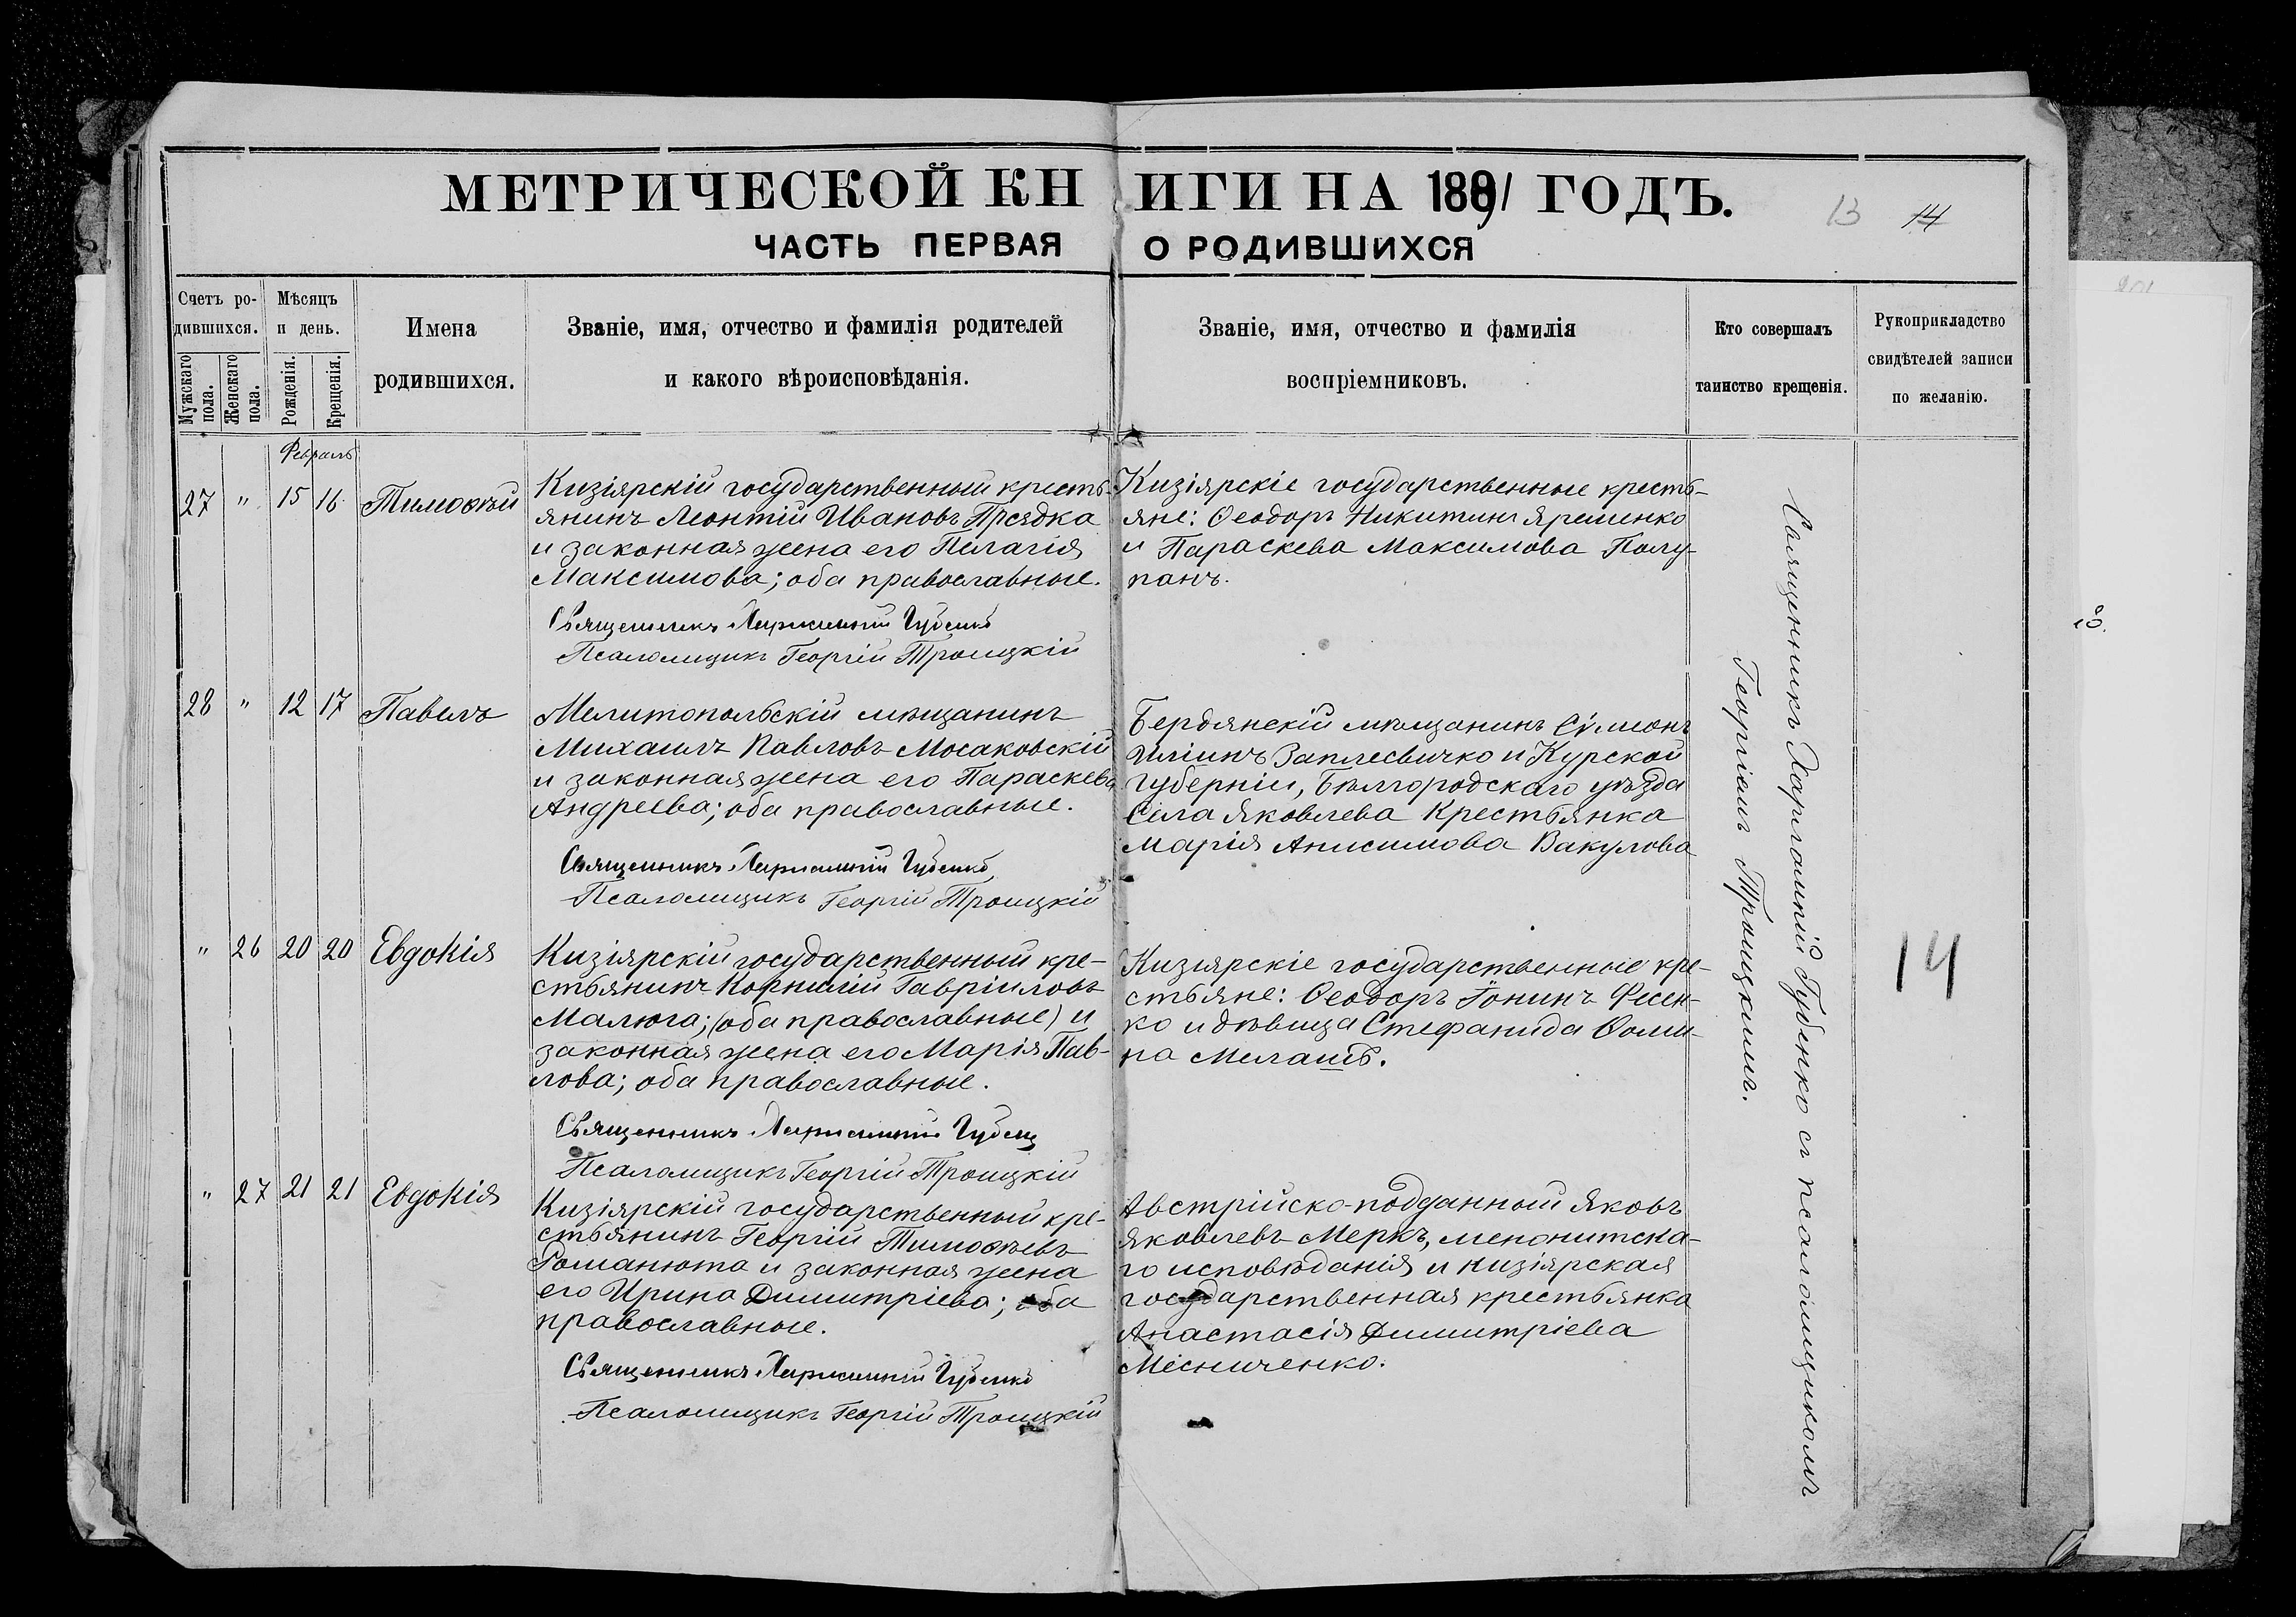 МЕТРИЧЕСКОЙ КНИГИ НА 1891 ГОДЪ.
13 14
ЧАСТЬ ПЕРВАЯ О РОДИВШИХСЯ
Счетъ ро-
дившихся.
Мужскаго пола.
Женскаго пола.
Мѣсяцъ
и день.
Рожденія.
Крещенія.
Имена
родившихся.
Званіе, имя, отчество и фамилія родителей
и какого вѣроисповѣданія.
Званіе, имя, отчество и фамилія
воспріемниковъ.
Кто совершалъ
таинство крещенія.
Рукоприкладство
свидѣтелей записи
по желанію.
Февраль
27 " 15 16 Тимоѳей
Кизіярскій государственный кресть-
янинъ Леонтій Ивановъ Прядка
и законная жена его Пелагія
Максимова; оба православные.
Священникъ Харлампій Губенко
Псаломщикъ Георгій Троицкій
Кизіярскіе государственные кресть-
яне: Ѳеодоръ Никитинъ Яременко
и Параскева Максимова Полу-
панъ.
28 " 12 17 Павелъ
Мелитопольскій мѣщанинъ
Михаилъ Павловъ Мосаковскій
и законная жена его Параскева
Андреева; оба православные.
Священникъ Харлампій Губенко
Псаломщикъ Георгій Троицкій
Бердянскій мѣщанинъ Сѵмеонъ
Иліинъ Заплесвичко и Курской
губерніи, Бѣлгородскаго уѣзда
села Яковлева крестьянка
Марія Анисимова Вакулова
" 26 20 20 Евдокія
Кизіярскій государственный кре-
стьянинъ Корнилій Гавріиловъ
Малюга; (оба православные) и
законная жена его Марія Пав-
лова; оба православные.
Священникъ Харлампій Губенко
Псаломщикъ Георгій Троицкій
Кизіярскіе государственные кре-
стьяне: Ѳеодоръ Іонинъ Фесен-
ко и дѣвица Стефанида Ѳоми-
на Мелашъ.
" 27 21 21 Евдокія
Кизіярскій государственный кре-
стьянинъ Георгій Тимоѳеевъ
Романюта и законная жена
его Ирина Димитріева; оба
православные.
Священникъ Харлампій Губенко
Псаломщикъ Георгій Троицкій
Австрійско-подданный Яковъ
Яковлевъ Меркъ, менонитска-
го исповѣданія и кизіярская
государственная крестьянка
Анастасія Димитріева
Месниченко.
Священникъ Харлампій Губенко съ псаломщикомъ
Георгіемъ Троицкимъ.
14